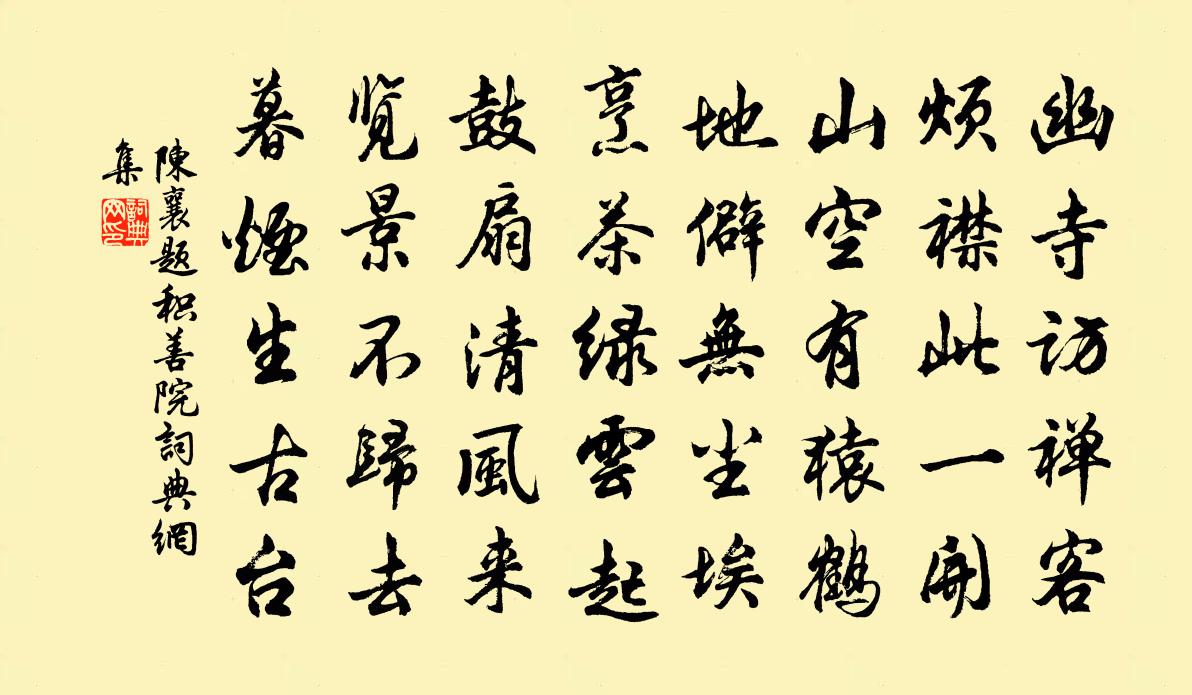 幽寺访禅客
烦襟此一開
山空有猿鹤
地僻無尘埃
烹茶绿雲起
鼓扇清風来
览景不歸去
暮煙生古台
陳襄題积善院詞典網
集
詞典
网印